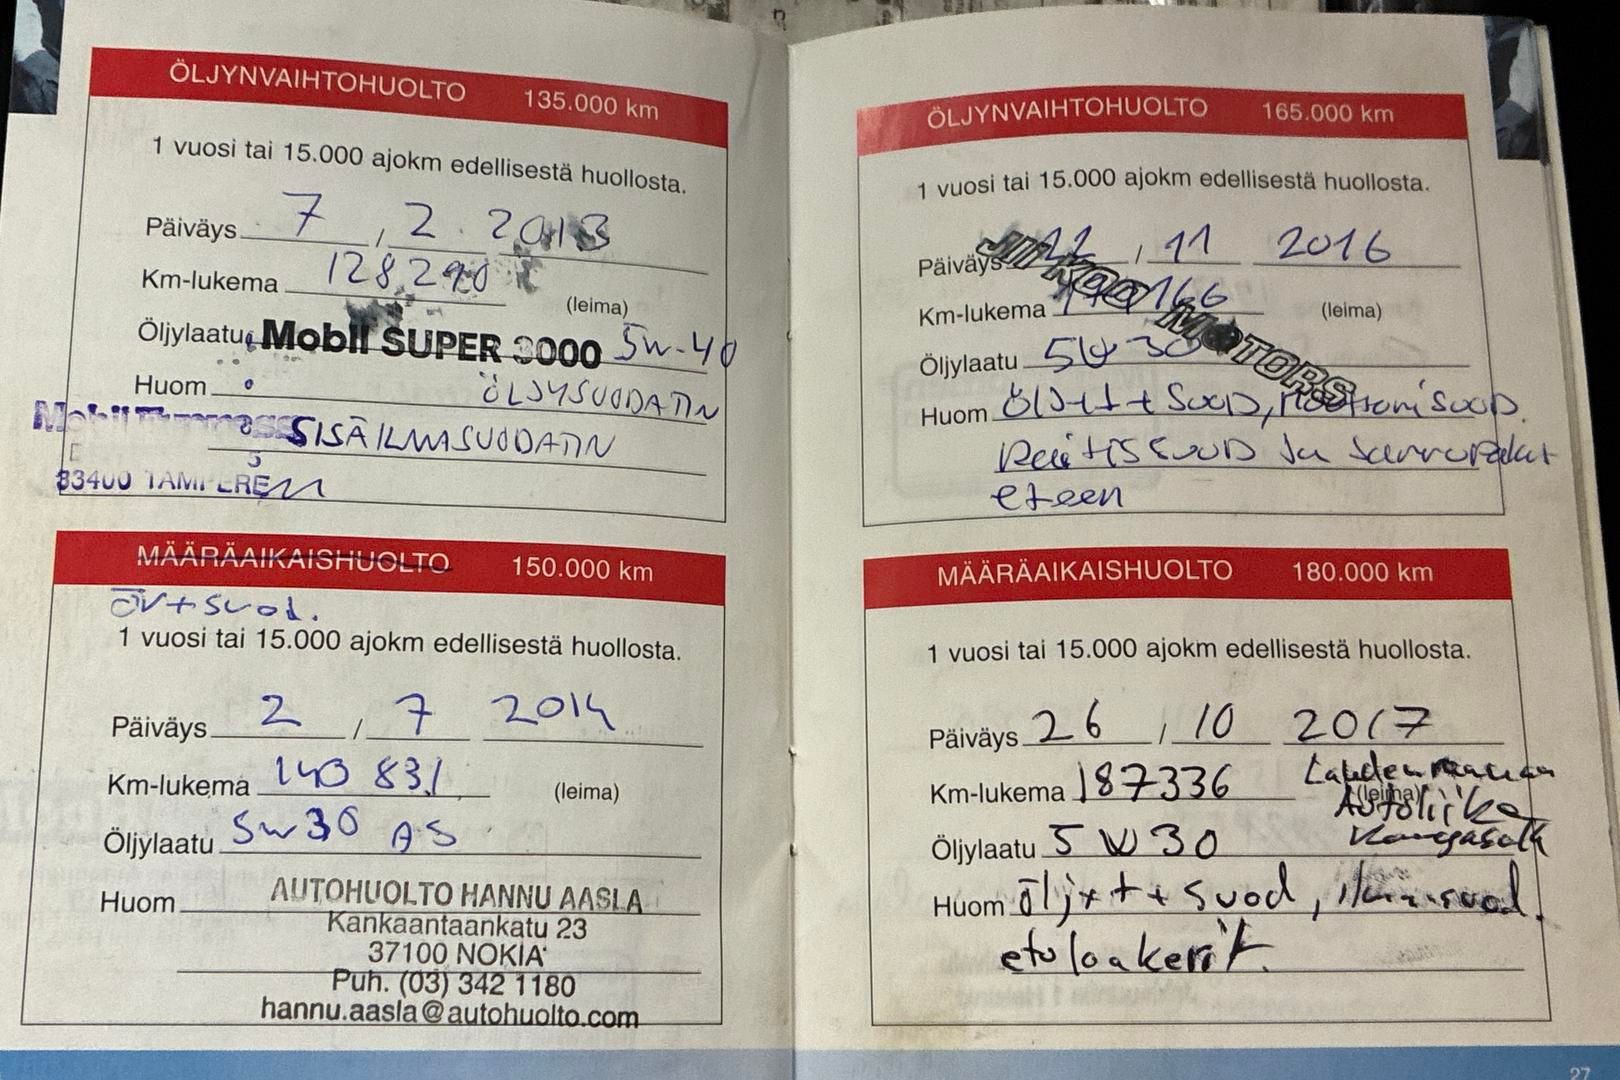 ÖLJYNVAIHTOHUOLTO 135.000 km
1 vuosi tai 15.000 ajokm edellisestä huollosta.
Päiväys 7 / 2 2013
Km-lukema 128.290
(leima)
Öljylaatu Mobil SUPER 3000 5W-40
Huom ÖLJYSUODATIN
SISÄILMASUODATIN
33400 TAMPERE
MÄÄRÄAIKAISHUOLTO 150.000 km
öv+suod.
1 vuosi tai 15.000 ajokm edellisestä huollosta.
Päiväys 2 / 7 2014
Km-lukema 140 831 (leima)
Öljylaatu 5w30 A5
Huom AUTOHUOLTO HANNU AASLA
Kankaantaankatu 23
37100 NOKIA
Puh. (03) 342 1180
hannu.aasla@autohuolto.com
ÖLJYNVAIHTOHUOLTO 165.000 km
1 vuosi tai 15.000 ajokm edellisestä huollosta.
Päiväys 22 / 11 2016
Km-lukema 166 (leima)
Öljylaatu 5W30
MOTORS
Huom Öljyt + Suod,
ja
eteen
MÄÄRÄAIKAISHUOLTO 180.000 km
1 vuosi tai 15.000 ajokm edellisestä huollosta.
Päiväys 26 / 10 2017
Km-lukema 187336
(leima)
Autoliike
Öljylaatu 5W30
Kangasala
Huom öljyt + suod, ilmansuod.
etuloakerit.
27